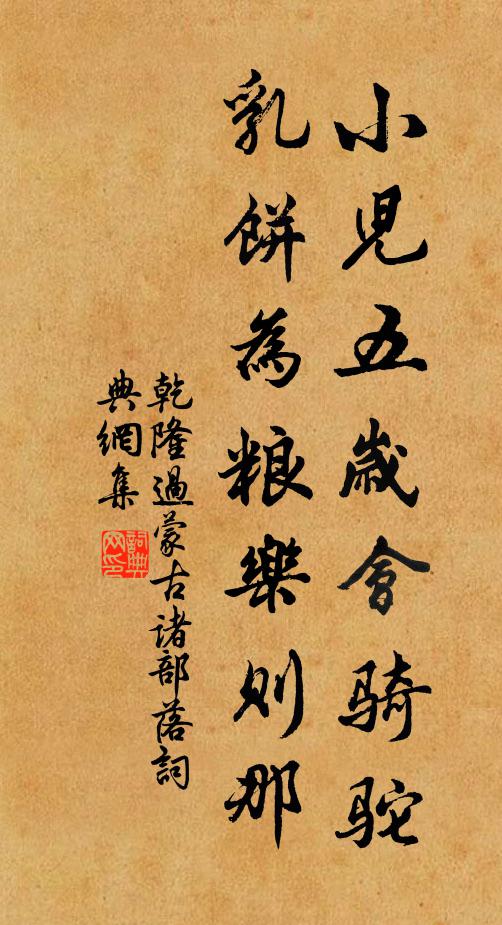 小兒五歲會騎駝
乳餅為粮樂則那
乾隆過蒙古诸部落詞
典網集
詞典
网印